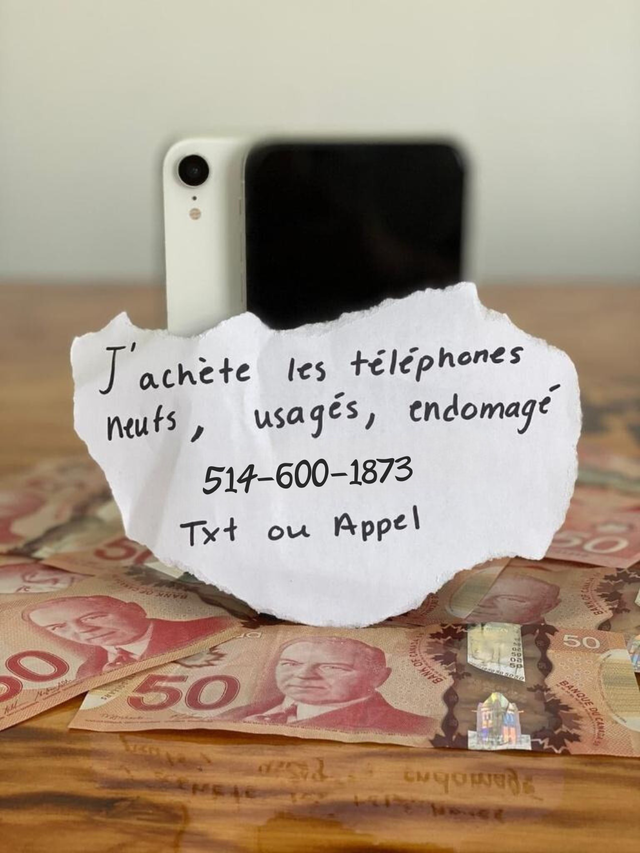 J'achète les téléphones
neufs, usagés, endomagé
514-600-1873
Txt ou Appel
50
50
50
50
BANK OF CANADA
BANQUE DU CANADA